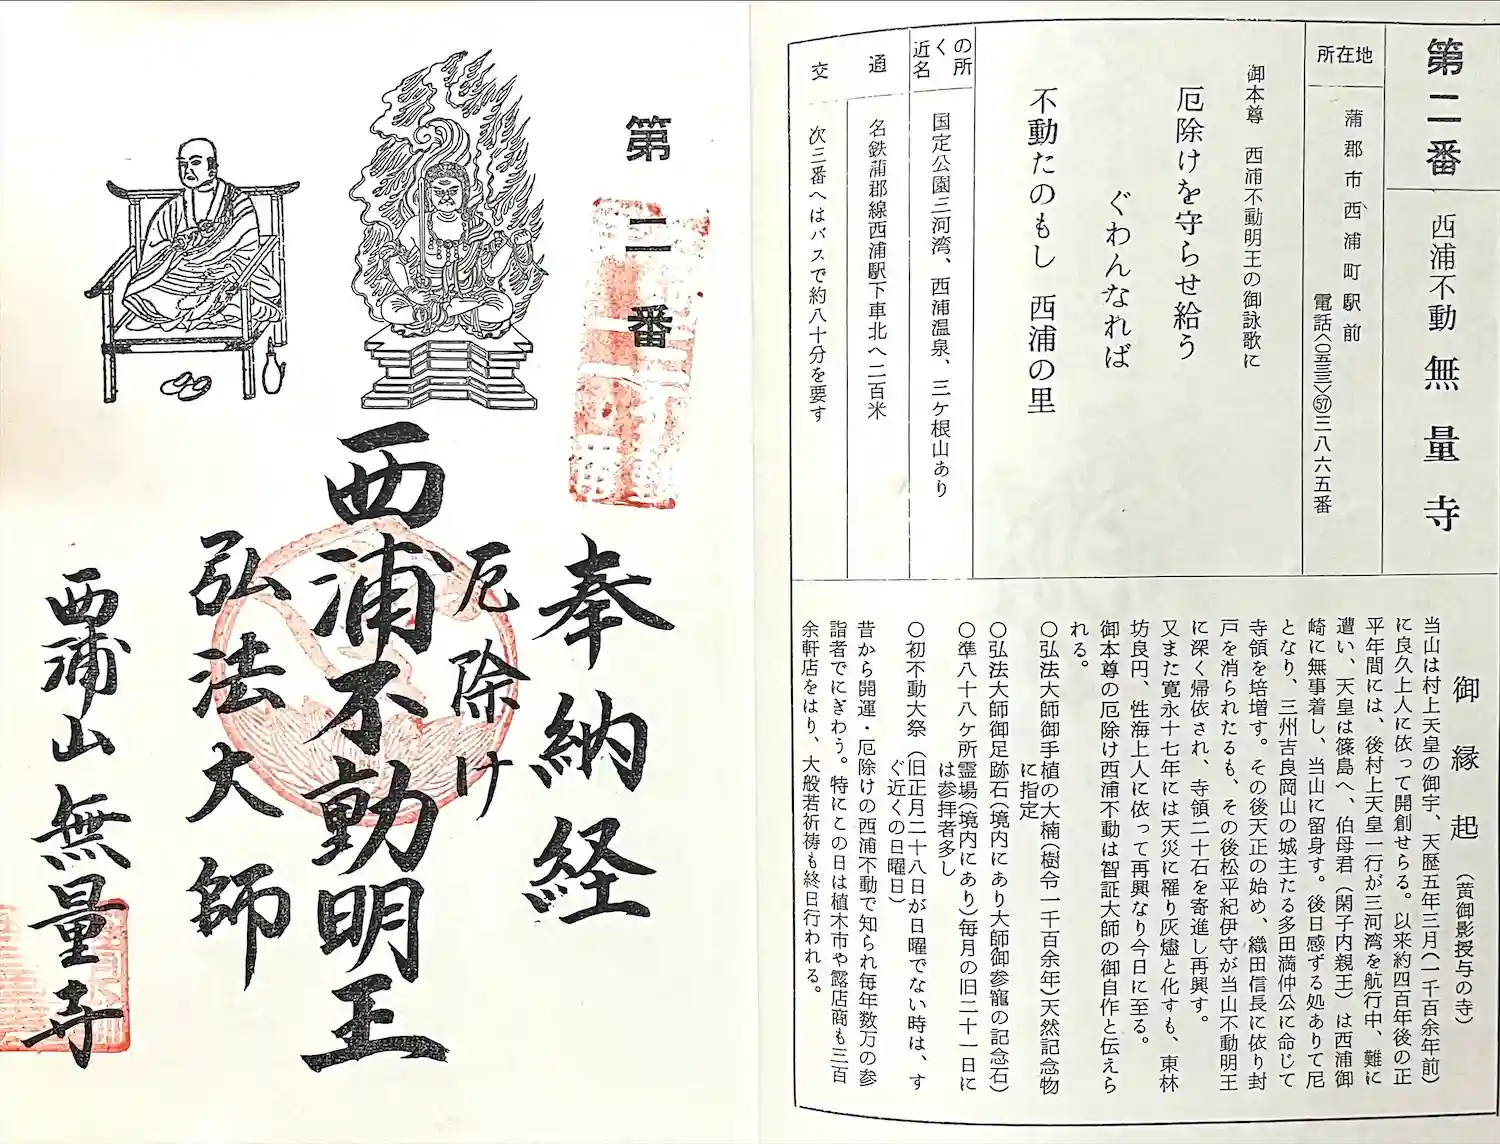 第二番
西浦不動 無量寺
所在地
蒲郡市西浦町駅前
電話〈〇五三三〉㊼三八六五番
御本尊 西浦不動明王の御詠歌に
厄除けを守らせ給う
ぐわんなれば
不動たのもし 西浦の里
近くの名所
国定公園三河湾、西浦温泉、三ケ根山あり
交通
名鉄蒲郡線西浦駅下車北へ二百米
次三番へはバスで約八十分を要す
御縁起(黄御影授与の寺)
当山は村上天皇の御宇、天歴五年三月(一千百余年前)
に良久上人に依って開創せらる。以来約四百年後の正
平年間には、後村上天皇一行が三河湾を航行中、難に
遭い、天皇は篠島へ、伯母君(閑子内親王)は西浦御
崎に無事着し、当山に留身す。後日感ずる処ありて尼
となり、三州吉良岡山の城主たる多田満仲公に命じて
寺領を培増す。その後天正の始め、織田信長に依り封
戸を消られたるも、その後松平紀伊守が当山不動明王
に深く帰依され、寺領二十石を寄進し再興す。
又また寛永十七年には天災に罹り灰燼と化すも、東林
坊良円、性海上人に依って再興なり今日に至る。
御本尊の厄除け西浦不動は智証大師の御自作と伝えら
れる。
〇弘法大師御手植の大楠(樹令一千百余年)天然記念物
に指定
〇弘法大師御足跡石(境内にあり大師御参寵の記念石)
〇準八十八ケ所霊場(境内にあり)毎月の旧二十一日に
は参拝者多し
〇初不動大祭(旧正月二十八日が日曜でない時は、す
ぐ近くの日曜日)
昔から開運・厄除けの西浦不動で知られ毎年数万の参
詣者でにぎわう。特にこの日は植木市や露店商も三百
余軒店をはり、大般若祈祷も終日行われる。
第二番
奉納経
厄除け
西浦不動明王
弘法大師
西浦山無量寺